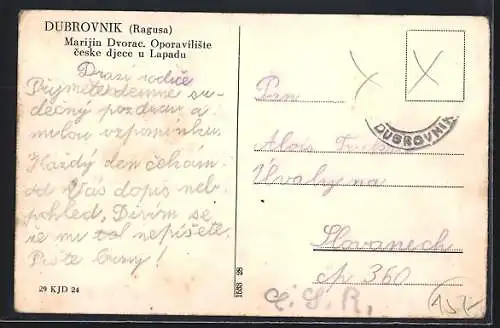 DUBROVNIK (Ragusa)
Marijin Dvorac. Oporavilište
češke djece u Lapadu
Drazí rodiče
Přijměte ode mne sr-
dečný pozdrav a
milou vzpomínku.
Každý den čekám
od Vás dopis neb
pohled, Divím se
že mi tol nepíšete.
Pište brzy!
29 KJD 24
1633 28
DUBROVNIK
Pan
Alois
Úvaly na
Slovanech
čp 360
Č. S. R.